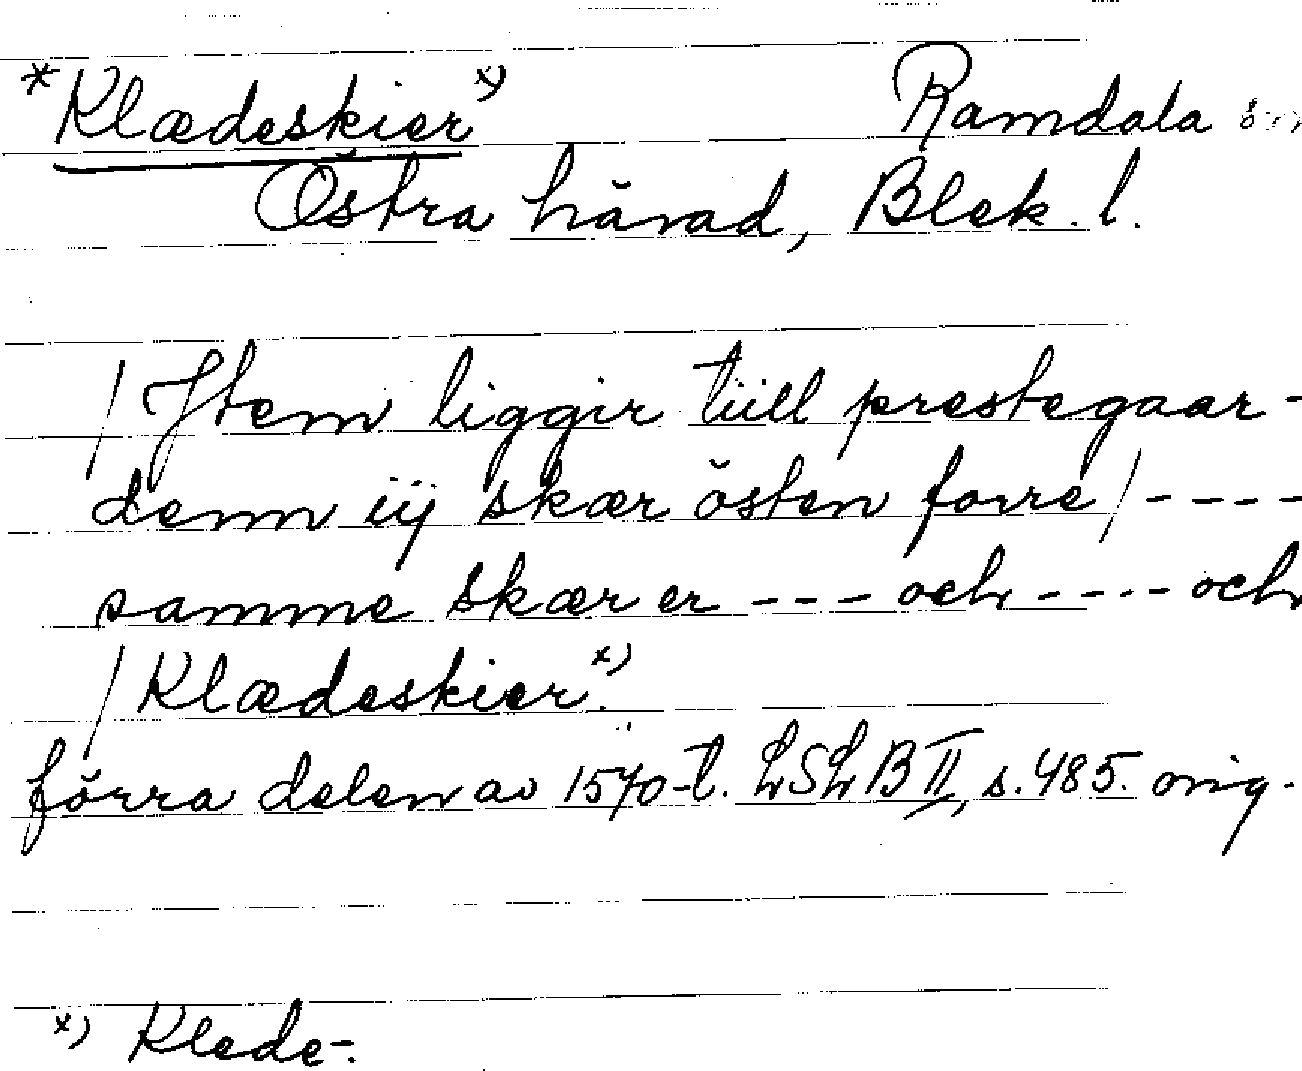 *Klædeskier x) Ramdala sn
Östra härad, Blek. l.
/Jtem liggir tiill prestegaar-
denn iij skær östen forre/----
samme skær er --- och ---- och
/Klædeskier. x)
förra delen av 1570-t. LSLB II, s. 485. orig.
x) Klede-.